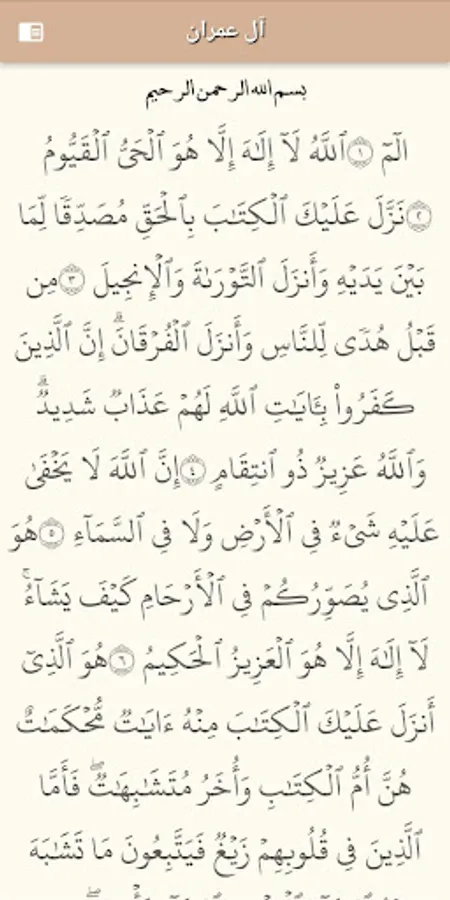 آل عمران
بسم الله الرحمن الرحيم
الٓمٓ ١ ٱللَّهُ لَآ إِلَٰهَ إِلَّا هُوَ ٱلْحَىُّ ٱلْقَيُّومُ
٢ نَزَّلَ عَلَيْكَ ٱلْكِتَٰبَ بِٱلْحَقِّ مُصَدِّقًا لِّمَا
بَيْنَ يَدَيْهِ وَأَنزَلَ ٱلتَّوْرَىٰةَ وَٱلْإِنجِيلَ ٣ مِن
قَبْلُ هُدًى لِّلنَّاسِ وَأَنزَلَ ٱلْفُرْقَانَ ۗ إِنَّ ٱلَّذِينَ
كَفَرُوا۟ بِـَٔايَٰتِ ٱللَّهِ لَهُمْ عَذَابٌ شَدِيدٌ ۗ
وَٱللَّهُ عَزِيزٌ ذُو ٱنتِقَامٍ ٤ إِنَّ ٱللَّهَ لَا يَخْفَىٰ
عَلَيْهِ شَىْءٌ فِى ٱلْأَرْضِ وَلَا فِى ٱلسَّمَآءِ ٥ هُوَ
ٱلَّذِى يُصَوِّرُكُمْ فِى ٱلْأَرْحَامِ كَيْفَ يَشَآءُ ۚ
لَآ إِلَٰهَ إِلَّا هُوَ ٱلْعَزِيزُ ٱلْحَكِيمُ ٦ هُوَ ٱلَّذِىٓ
أَنزَلَ عَلَيْكَ ٱلْكِتَٰبَ مِنْهُ ءَايَٰتٌ مُّحْكَمَٰتٌ
هُنَّ أُمُّ ٱلْكِتَٰبِ وَأُخَرُ مُتَشَٰبِهَٰتٌ ۖ فَأَمَّا
ٱلَّذِينَ فِى قُلُوبِهِمْ زَيْغٌ فَيَتَّبِعُونَ مَا تَشَٰبَهَ